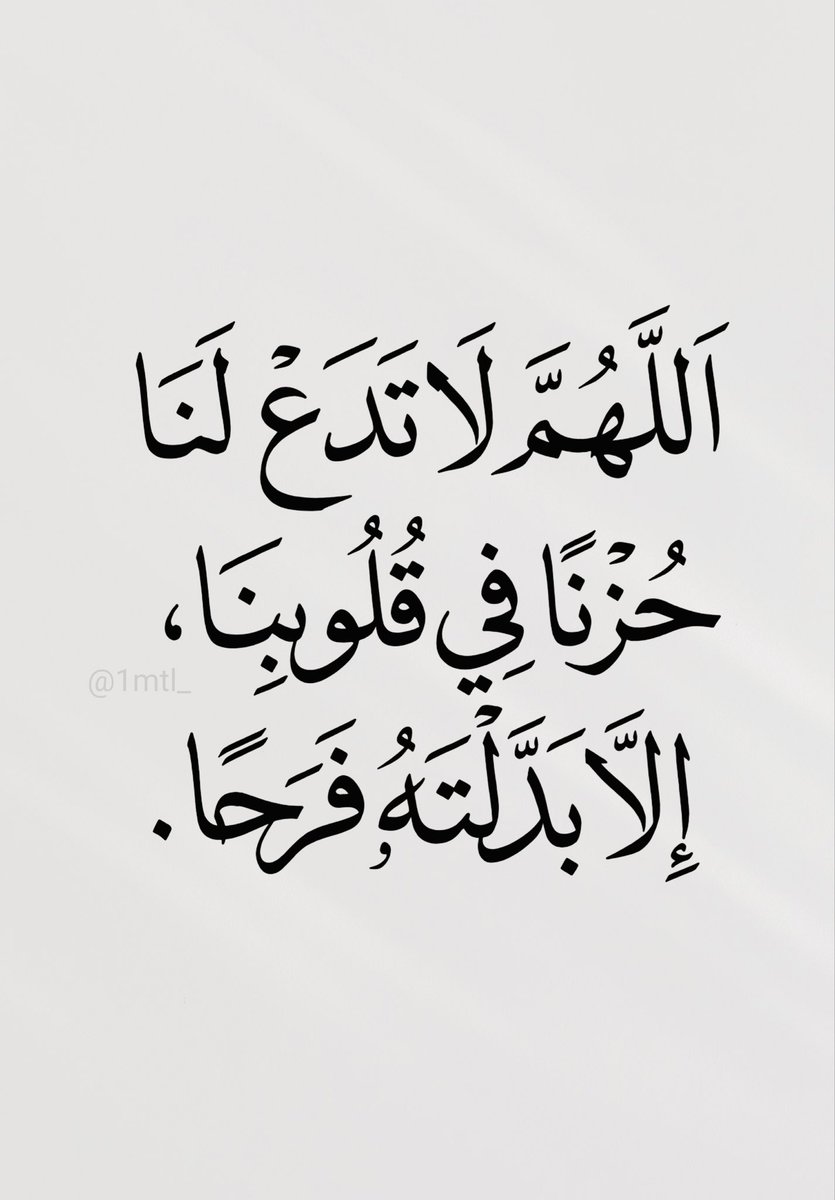 اَللَّهُمَّ لَا تَدَعْ لَنَا
حُزْنًا فِي قُلُوبِنَا،
@1mtl_
إِلاَّ بَدَّلْتَهُ فَرَحًا.